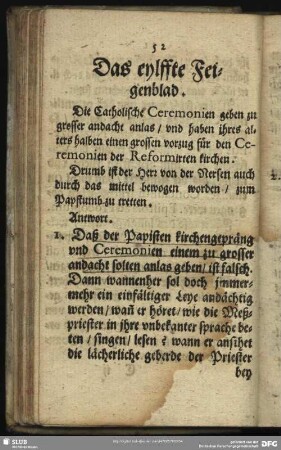 52
Das eylffte Fei-
genblad.
Die Catholische Ceremonien geben zu
grosser andacht anlas / vnd haben ihres al-
ters halben einen grossen vorzug für den Ce-
remonien der Reformirten kirchen.
Drumb ist der Herr von der Nersen auch
durch das mittel bewogen worden / zum
Papstumb zu tretten.
Antwort.
1. Daß der Papisten kirchengepräng
vnd Ceremonien einem zu grosser
andacht solten anlas geben / ist falsch.
Dann wannenher sol doch jmmer-
mehr ein einfältiger Leye andächtig
werden / wañ er höret / wie die Meß-
priester in jhre vnbekanter sprache be-
ten / singen / lesen? wann er ansihet
die lächerliche geberde der Priester
bey
SLUB
DFG